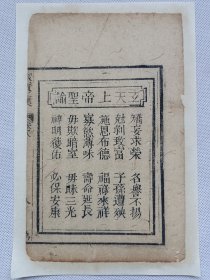 玄天上帝聖諭
矯妄求榮 名譽不揚
尅剥致富 子孫遭殃
施恩布德 福祿來祥
寡慾薄味 壽命延長
毋欺暗室 毋昧三光
神明護佑 必保安康